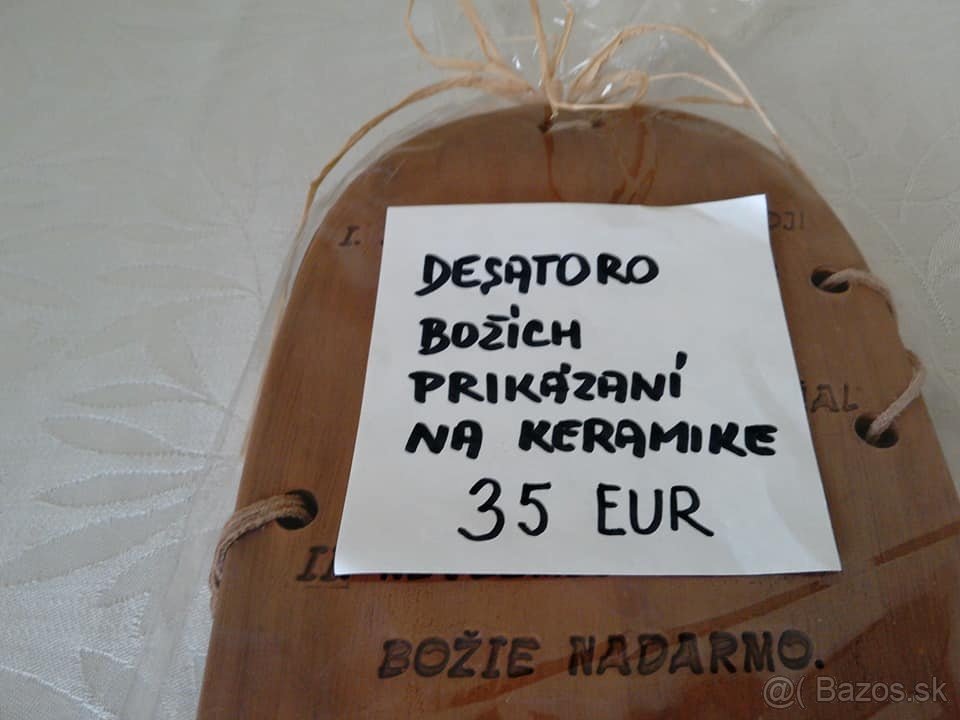 I.
DESATORO
BOŽÍCH
PRIKÁZANÍ
NA KERAMIKE
35 EUR
II.
BOŽIE NADARMO.
@( Bazos.sk